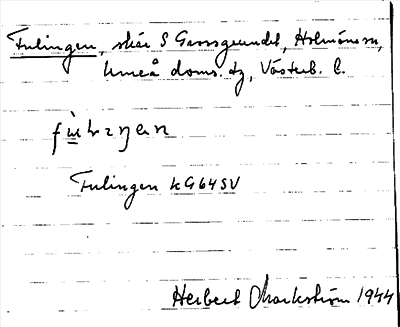 Fulingen, skär S Grossgrundet, Holmöns sn,
Umeå doms. tg, Västerb. l.
Fulingen kG64SV
Herbert Markström 1944